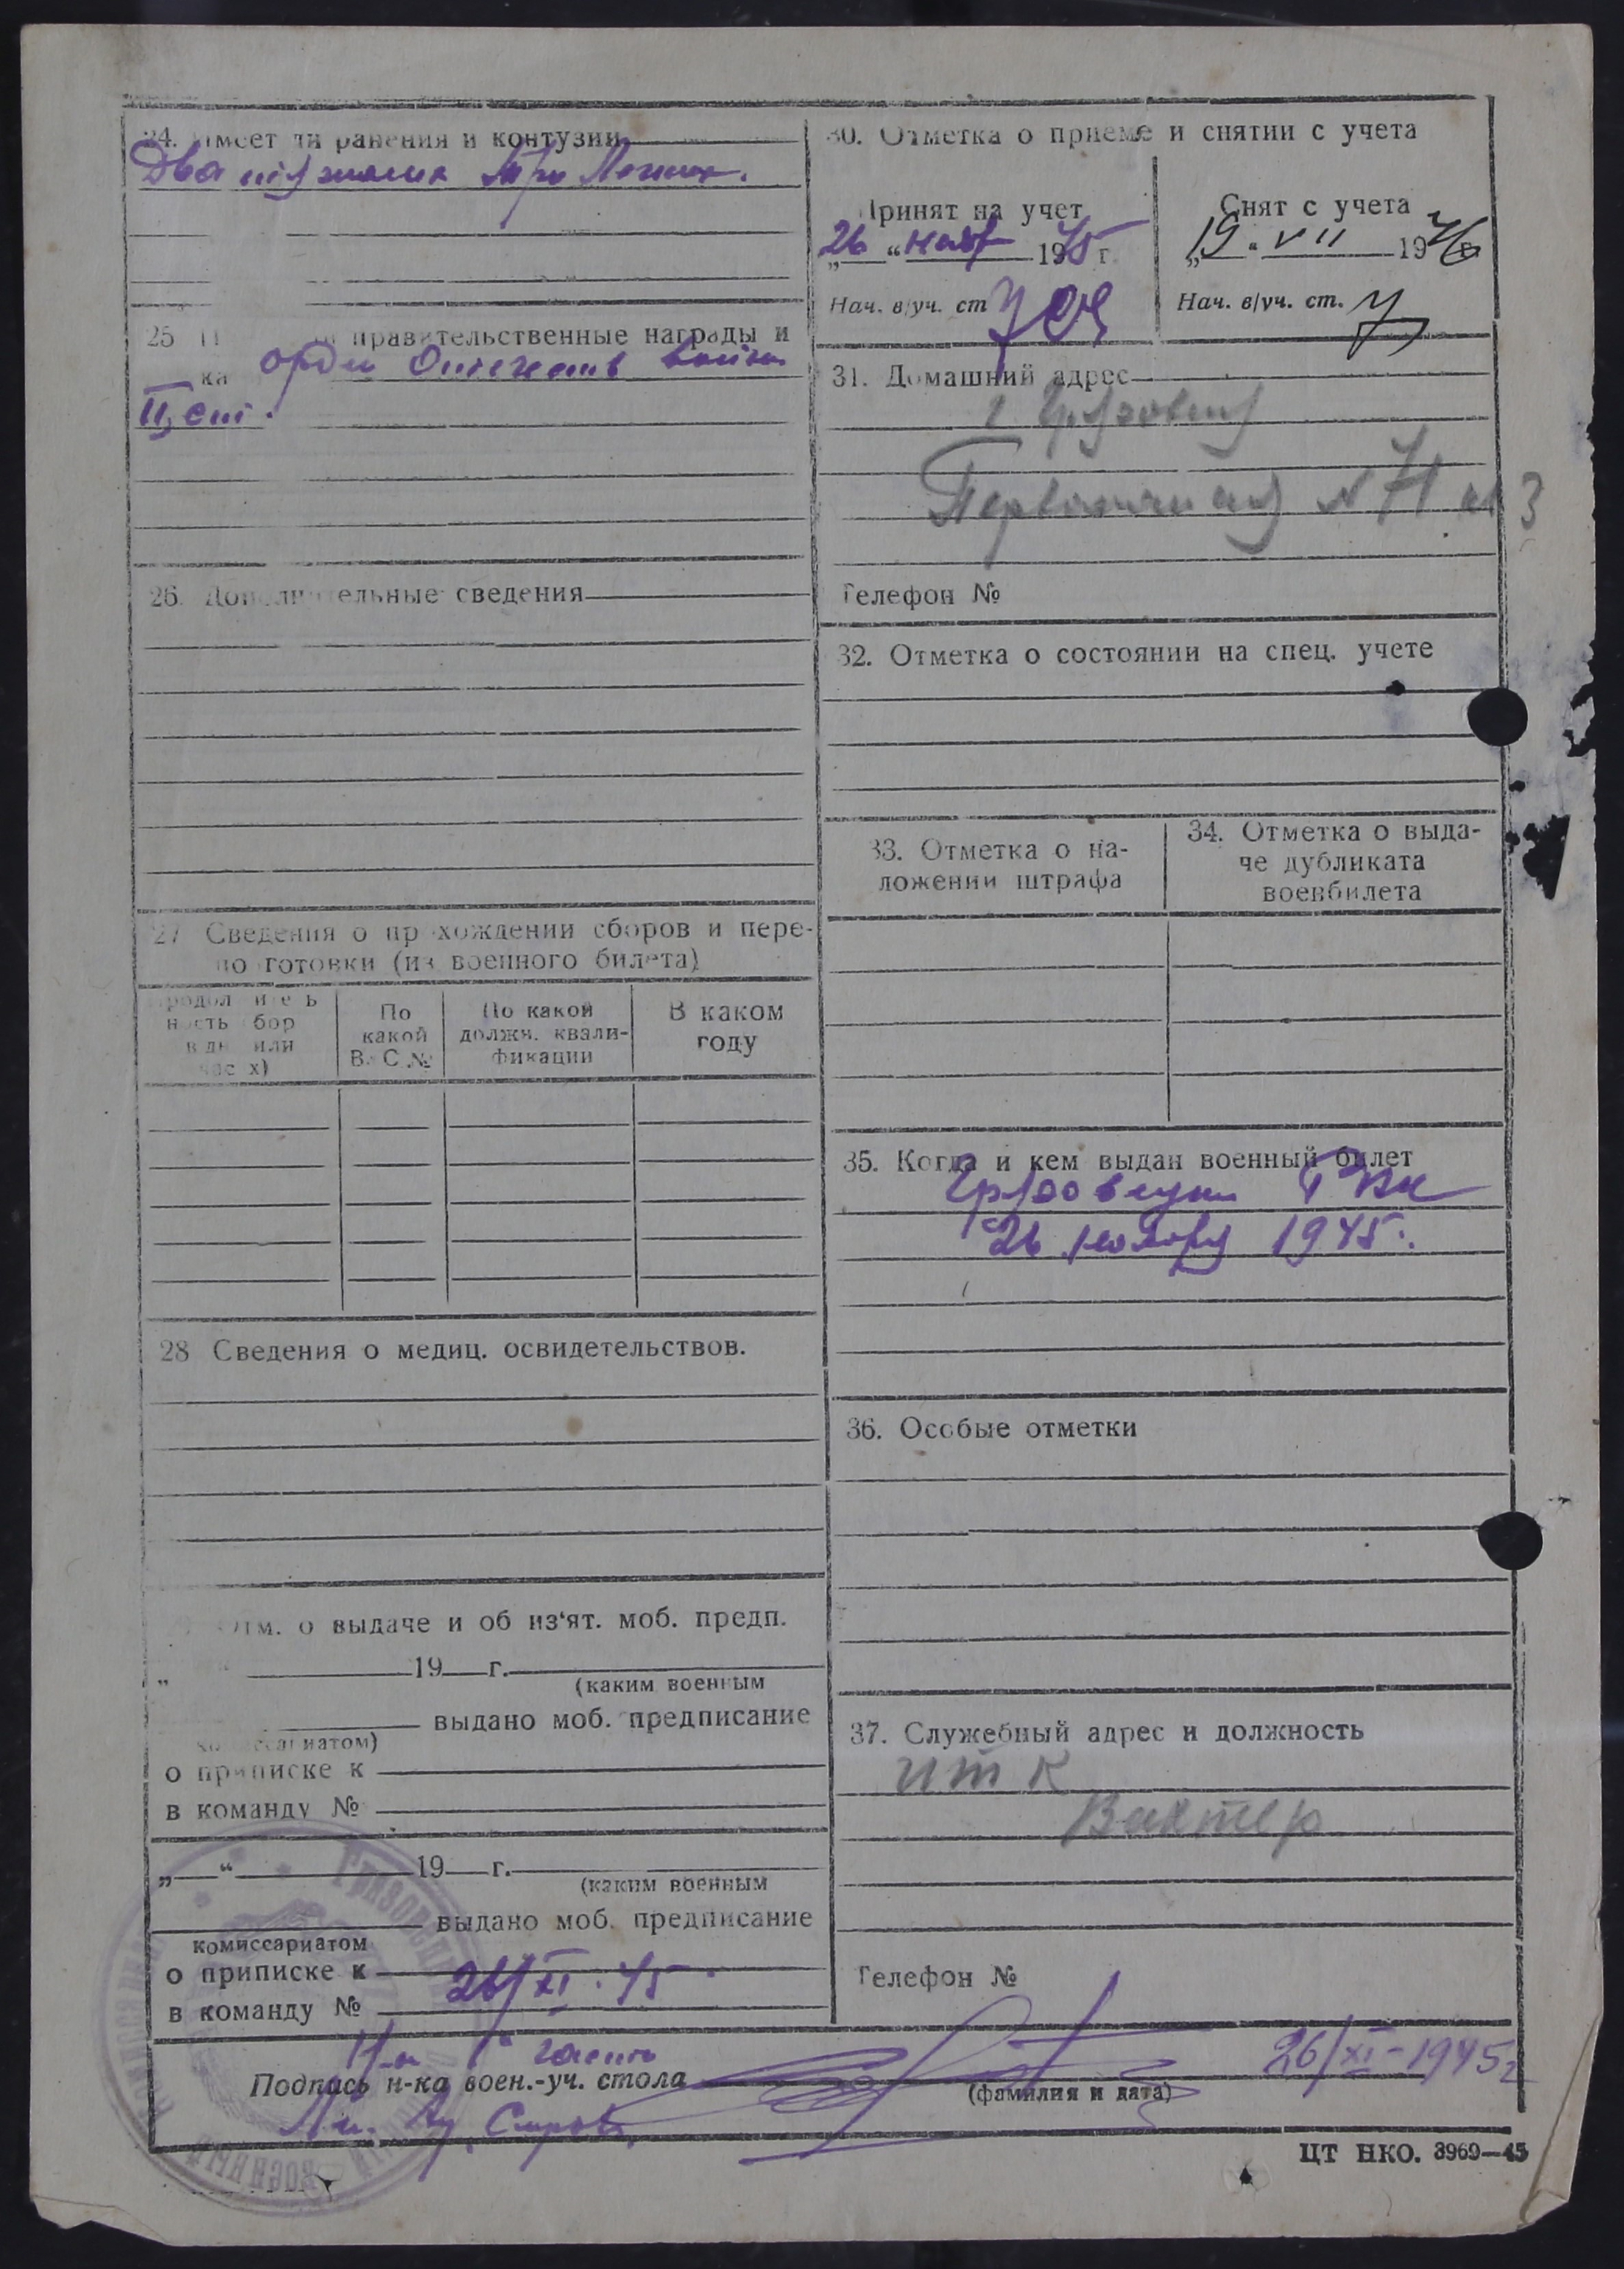 24. Имеет ли ранения и контузии
Два тяжелых три легких.
25 правительственные награды и
ка орден Отечеств войны
II ст.
26. Дополнительные сведения
27 Сведения о прохождении сборов и пере-
подготовки (из военного билета)
Продолжитель
ность сбор
в дн или
час х)
По
какой
В. С №
По какой
должн. квали-
фикации
В каком
году
28 Сведения о медиц. освидетельствов.
Отм. о выдаче и об из'ят. моб. предп.
„ “ 19 г.
(каким военным
выдано моб. предписание
комиссариатом)
о приписке к
в команду №
„ “ 19 г.
(каким военным
выдано моб. предписание
комиссариатом
о приписке к
26/XI. 45.
в команду №
30. Отметка о приеме и снятии с учета
Принят на учет
26 “ нояб 1945 г.
Нач. в/уч. ст
Снят с учета
„19“ VII 1946
Нач. в/уч. ст.
31. Домашний адрес
г. Грязовец
Первомайская № 71 кв 3
Телефон №
32. Отметка о состоянии на спец. учете
33. Отметка о на-
ложении штрафа
34. Отметка о выда-
че дубликата
военбилета
35. Когда и кем выдан военный билет
Грязовецким РВК
26 ноября 1945.
36. Особые отметки
37. Служебный адрес и должность
ИТК
Вахтер
Телефон №
Н-к 1 части
Подпись н-ка воен.-уч. стола
(фамилия и дата)
26/XI-1945г
ЦТ НКО. 3969—45